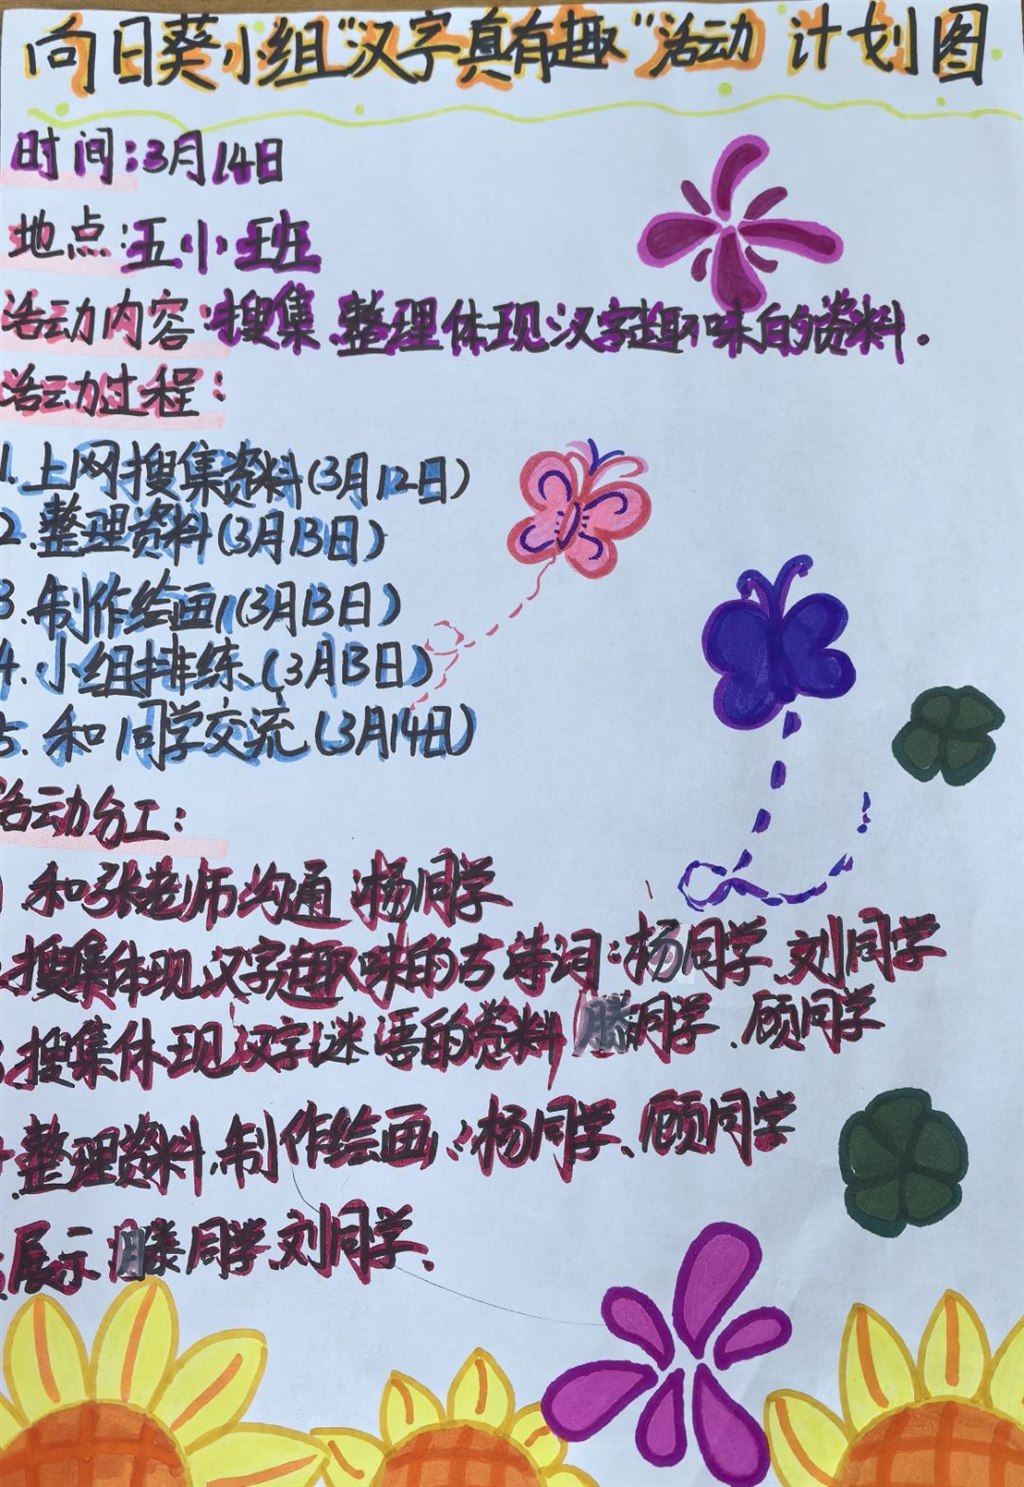 向日葵小组“汉字真有趣”活动计划图
时间:3月14日
地点:五小班
活动内容:搜集、整理体现汉字趣味的资料.
活动过程:
1.上网搜集资料(3月12日)
2.整理资料(3月13日)
3.制作绘画(3月13日)
4.小组排练(3月13日)
5.和同学交流(3月14日)
活动分工:
和张老师沟通:杨同学
搜集体现汉字趣味的古诗词:杨同学、刘同学
3.搜集体现汉字谜语的资料 滕同学、顾同学
整理资料、制作绘画:杨同学、顾同学
展示 滕同学、刘同学、